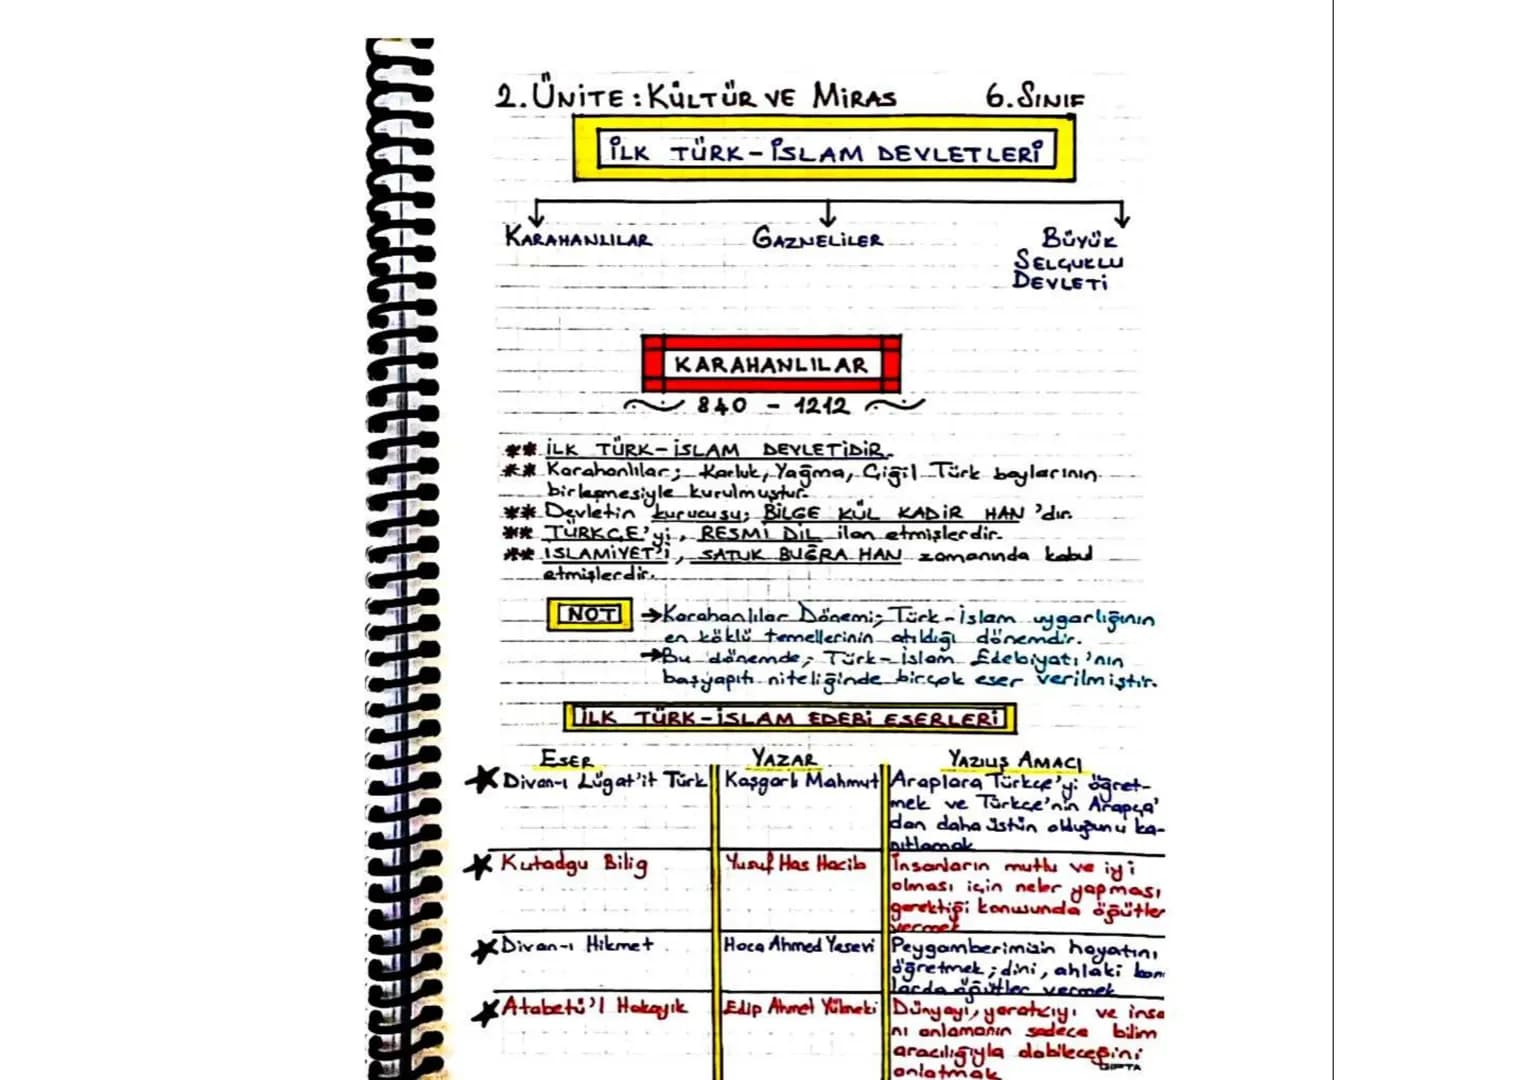 2. ÜNİTE: KÜLTÜR VE MİRAS 6. SINIF
İLK TÜRK-İSLAM DEVLETLERİ
KARAHANLILAR GAZNELİLER BÜYÜK
SELÇUKLU
DEVLETİ
KARAHANLILAR
840 - 1212
** İLK TÜRK-İSLAM DEVLETİDİR.
** Karahanlılar; Karluk, Yağma, Çiğil Türk boylarının
birleşmesiyle kurulmuştur.
** Devletin kurucusu; BİLGE KÜL KADİR HAN'dır.
** TÜRKÇE'yi, RESMİ DİL ilan etmişlerdir.
** İSLAMİYET'i, SATUK BUĞRA HAN zamanında kabul
etmişlerdir.
NOT →Karahanlılar Dönemi; Türk-İslam uygarlığının
en köklü temellerinin atıldığı dönemdir.
→Bu dönemde; Türk-İslam Edebiyatı'nın
başyapıtı niteliğinde birçok eser verilmiştir.
İLK TÜRK-İSLAM EDEBİ ESERLERİ
ESER YAZAR YAZILIŞ AMACI
Divan-ı Lügat'it Türk Kaşgarlı Mahmut Araplara Türkçe'yi öğret-
mek ve Türkçe'nin Arapça'
dan daha üstün olduğunu ka-
nıtlamak
Kutadgu Bilig Yusuf Has Hacib İnsanların mutlu ve iyi
olması için neler yapması
gerektiği konusunda öğütler
vermek
Divan-ı Hikmet Hoca Ahmed Yesevi Peygamberimizin hayatını
öğretmek; dini, ahlaki kon
larda öğütler vermek
Atabetü'l Hakayık Edip Ahmet Yükneki Dünyayı, yaratıcıyı ve insa
nı anlamanın sadece bilim
aracılığıyla olabileceğini
anlatmak